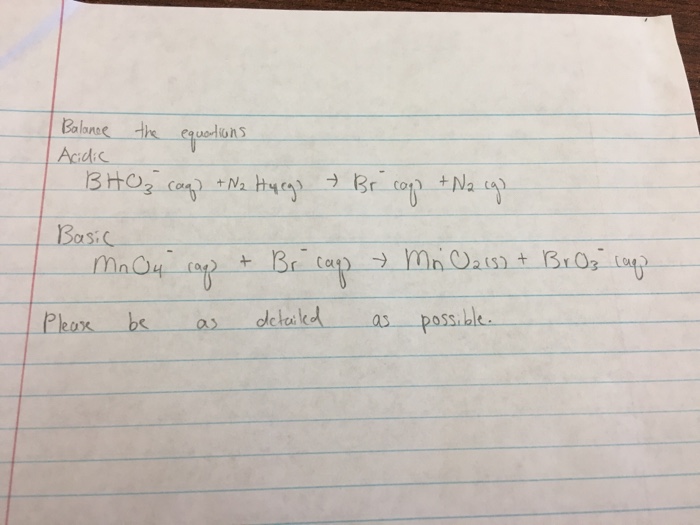 Balance the equations
Acidic
BHO₃⁻ (aq) + N₂ H₄(g) → Br⁻ (aq) + N₂ (g)
Basic
MnO₄⁻ (aq) + Br⁻ (aq) → MnO₂(s) + BrO₃⁻ (aq)
Please be as detailed as possible.